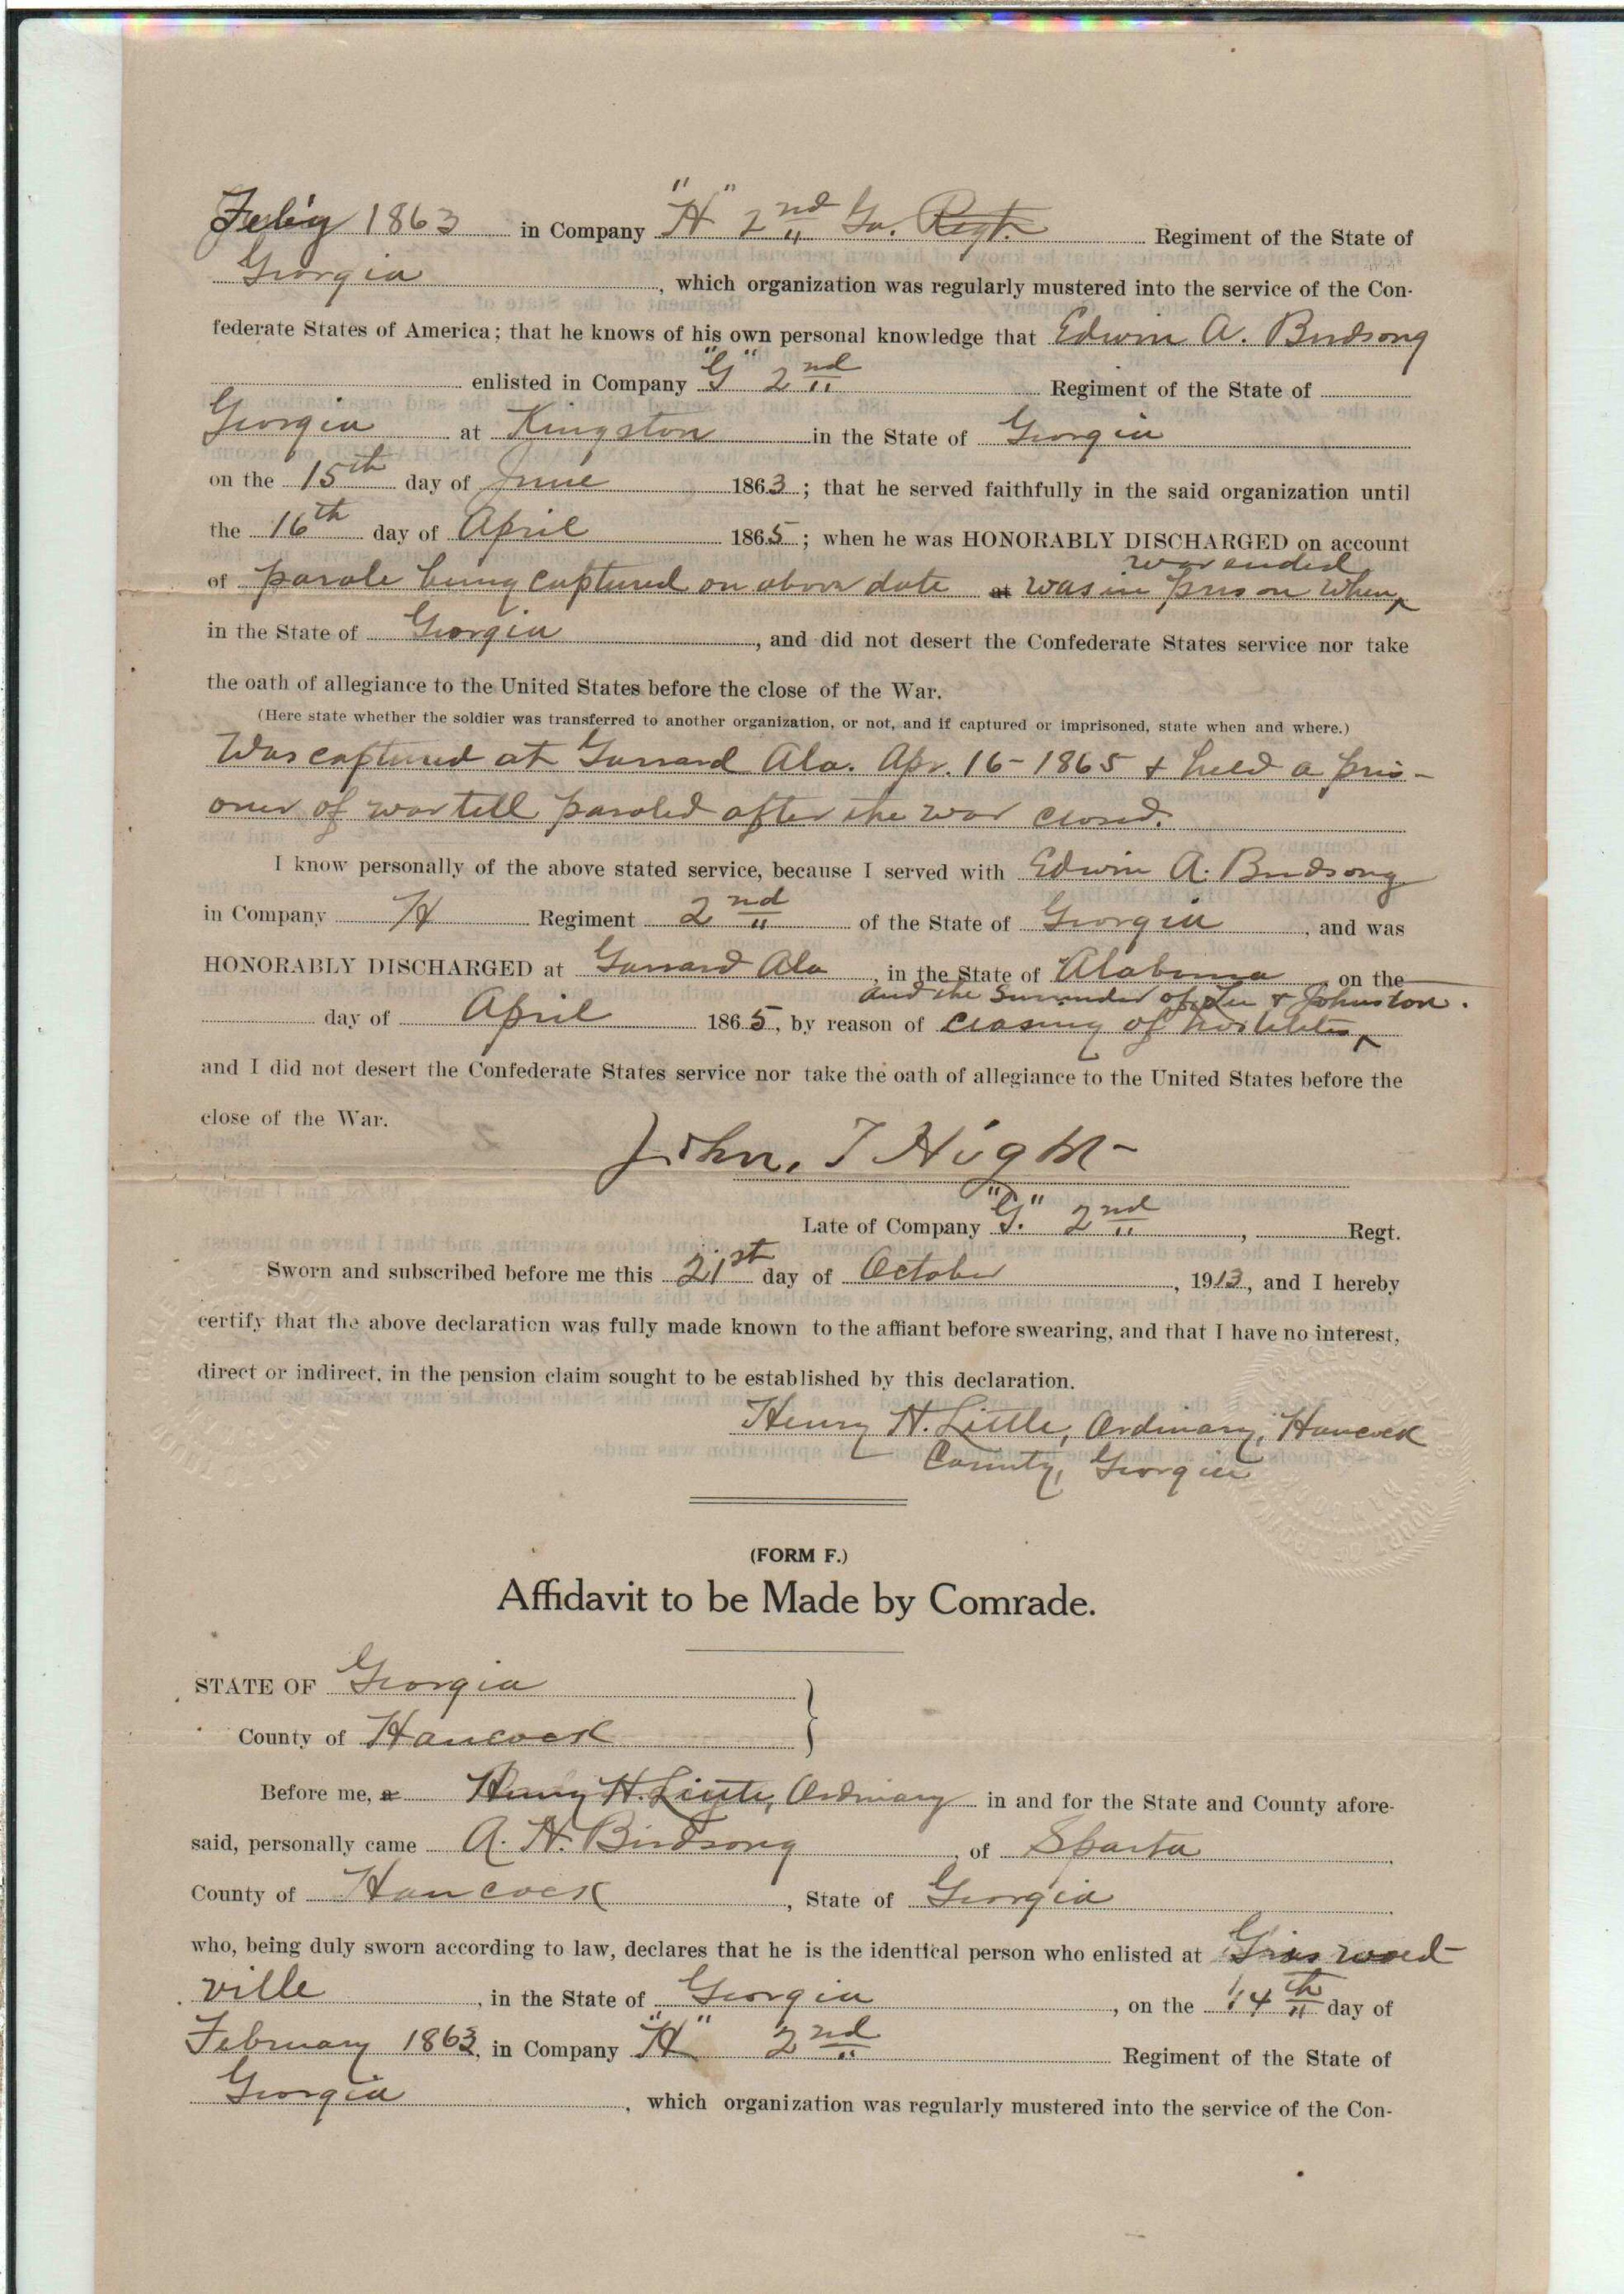 Feb'y 1863 in Company "H" 2nd Ga. Regt. Regiment of the State of
Georgia, which organization was regularly mustered into the service of the Con-
federate States of America; that he knows of his own personal knowledge that Edwin A. Birdsong
enlisted in Company "G" 2nd Regiment of the State of
Georgia at Kingston in the State of Georgia
on the 15th day of June 1863; that he served faithfully in the said organization until
the 16th day of April 1865; when he was HONORABLY DISCHARGED on account
war ended
of parole being captured on above date at was in prison when
in the State of Georgia, and did not desert the Confederate States service nor take
the oath of allegiance to the United States before the close of the War.
(Here state whether the soldier was transferred to another organization, or not, and if captured or imprisoned, state when and where.)
Was captured at Garrard Ala. Apr. 16-1865 & held a pris-
oner of war till paroled after the war closed.
I know personally of the above stated service, because I served with Edwin A. Birdsong
in Company H Regiment 2nd of the State of Georgia, and was
HONORABLY DISCHARGED at Garrard Ala, in the State of Alabama on the
and the Surrender of Lee & Johnston.
day of April 1865, by reason of Closing of hostilities
and I did not desert the Confederate States service nor take the oath of allegiance to the United States before the
close of the War.
John. T Hight
Late of Company "G." 2nd, Regt.
Sworn and subscribed before me this 21st day of October, 1913, and I hereby
certify that the above declaration was fully made known to the affiant before swearing, and that I have no interest,
direct or indirect, in the pension claim sought to be established by this declaration.
Henry H. Little, Ordinary, Hancock
County, Georgia
(FORM F.)
Affidavit to be Made by Comrade.
STATE OF Georgia
County of Hancock
Before me, a Henry H. Little, Ordinary in and for the State and County afore-
said, personally came A. H. Birdsong, of Sparta
County of Hancock, State of Georgia
who, being duly sworn according to law, declares that he is the identical person who enlisted at Griswold-
ville, in the State of Georgia, on the 14th day of
February 1863, in Company "H" 2nd Regiment of the State of
Georgia, which organization was regularly mustered into the service of the Con-